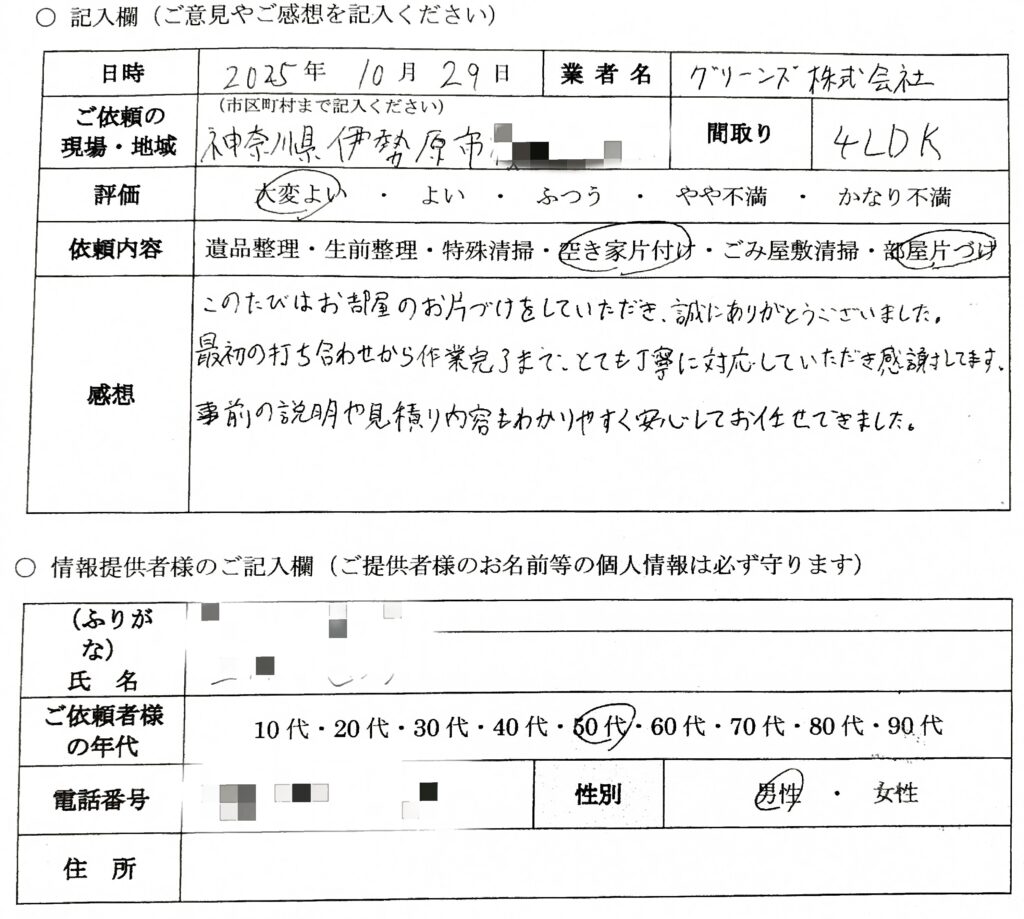 ○ 記入欄（ご意見やご感想を記入ください）
日時 2025年 10月 29日 業者名 グリーンズ株式会社
ご依頼の現場・地域 （市区町村まで記入ください） 神奈川県伊勢原市 間取り 4LDK
評価 大変よい ・ よい ・ ふつう ・ やや不満 ・ かなり不満
依頼内容 遺品整理・生前整理・特殊清掃・空き家片付け・ごみ屋敷清掃・部屋片づけ
感想
このたびはお部屋のお片づけをしていただき、誠にありがとうございました。
最初の打ち合わせから作業完了まで、とても丁寧に対応していただき感謝してます。
事前の説明や見積り内容もわかりやすく安心してお任せできました。
○ 情報提供者様のご記入欄（ご提供者様のお名前等の個人情報は必ず守ります）
（ふりがな）
氏 名
ご依頼者様の年代 10代・20代・30代・40代・50代・60代・70代・80代・90代
電話番号 性別 男性 ・ 女性
住 所